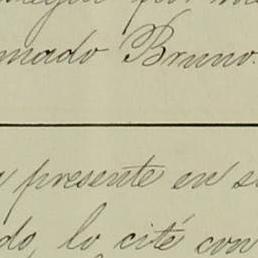 por
mado Bruno.
presente en
do, lo cité con